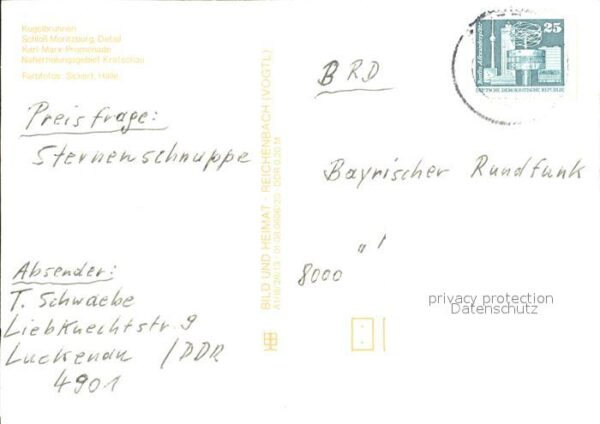 Kugelbrunnen
Schloß Moritzburg, Detail
Karl-Marx-Promenade
Naherholungsgebiet Kretschau
Farbfotos: Sickert, Halle
Preisfrage:
Sternenschnuppe
Absender:
T. Schwaebe
Liebknechtstr. 9
Luckenau /DDR
4901
BILD UND HEIMAT · REICHENBACH (VOGTL)
BRD
25
Berlin, Alexanderplatz
DEUTSCHE DEMOKRATISCHE REPUBLIK
Bayrischer Rundfunk
8000
privacy protection
Datenschutz